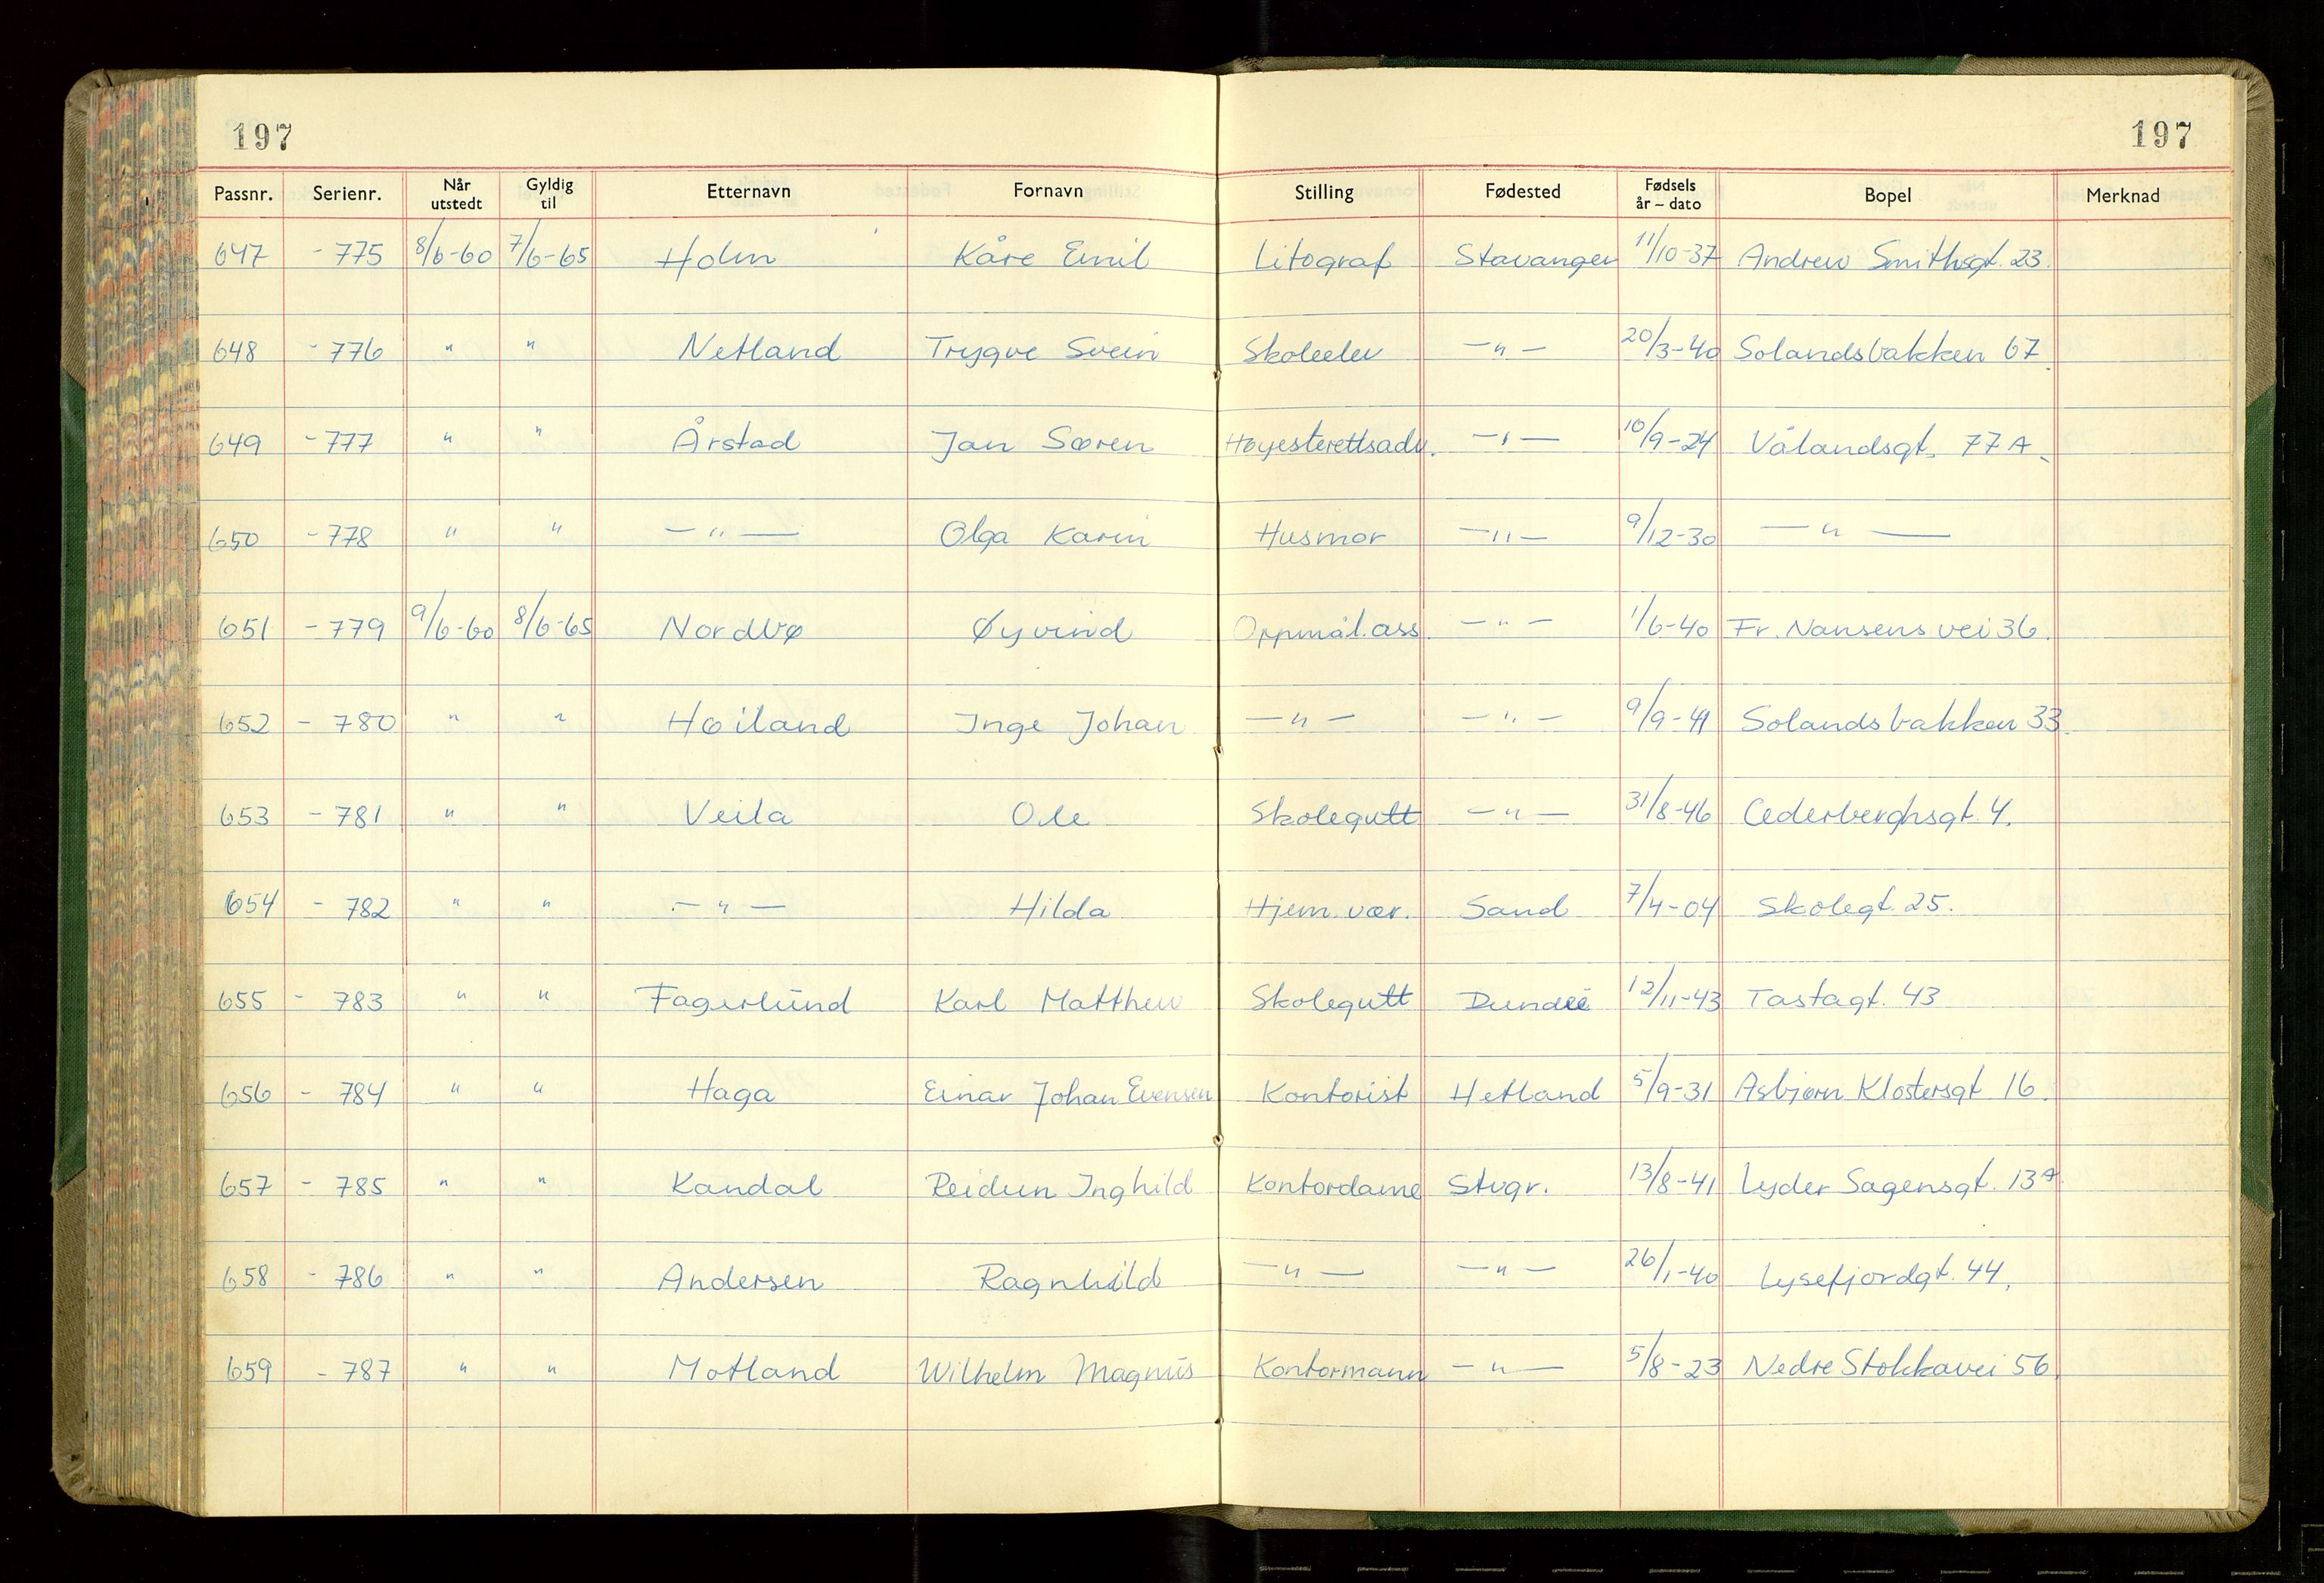 197 197
Passnr. Serienr. Når utstedt Gyldig til Etternavn Fornavn Stilling Fødested Fødsels år – dato Bopel Merknad
647 - 775 8/6-60 7/6-65 Holm Kåre Emil Litograf Stavanger 11/10-37 Andrew Smithsgt. 23.
648 - 776 " " Netland Trygve Svein Skoleelev — " — 20/3-40 Solandsbakken 67.
649 - 777 " " Årstad Jan Søren Høyesterettsadv. — " — 10/9-24 Vålandsgt. 77 A.
650 - 778 " " — " — Olga Karin Husmor — " — 9/12-30 — " —
651 - 779 9/6-60 8/6-65 Nordbø Øyvind Oppmål.ass. — " — 1/6-40 Fr. Nansens vei 36.
652 - 780 " " Høiland Inge Johan — " — — " — 9/9-41 Solandsbakken 33.
653 - 781 " " Veila Ole Skolegutt — " — 31/8-46 Cederberghsgt. 4.
654 - 782 " " — " — Hilda Hjem. vær. Sand 7/4-04 Skolegt. 25.
655 - 783 " " Fagerlund Karl Matthew Skolegutt Dundee 12/11-43 Tastagt. 43
656 - 784 " " Haga Einar Johan Evensen Kontorist Hetland 5/9-31 Asbjørn Klostersgt 16.
657 - 785 " " Kandal Reidun Inghild Kontordame Stvgr. 13/8-41 Lyder Sagensgt. 13 A.
658 - 786 " " Andersen Ragnhild — " — — " — 26/1-40 Lysefjordgt. 44.
659 - 787 " " Motland Wilhelm Magnus Kontormann — " — 5/8-23 Nedre Stokkavei 56.